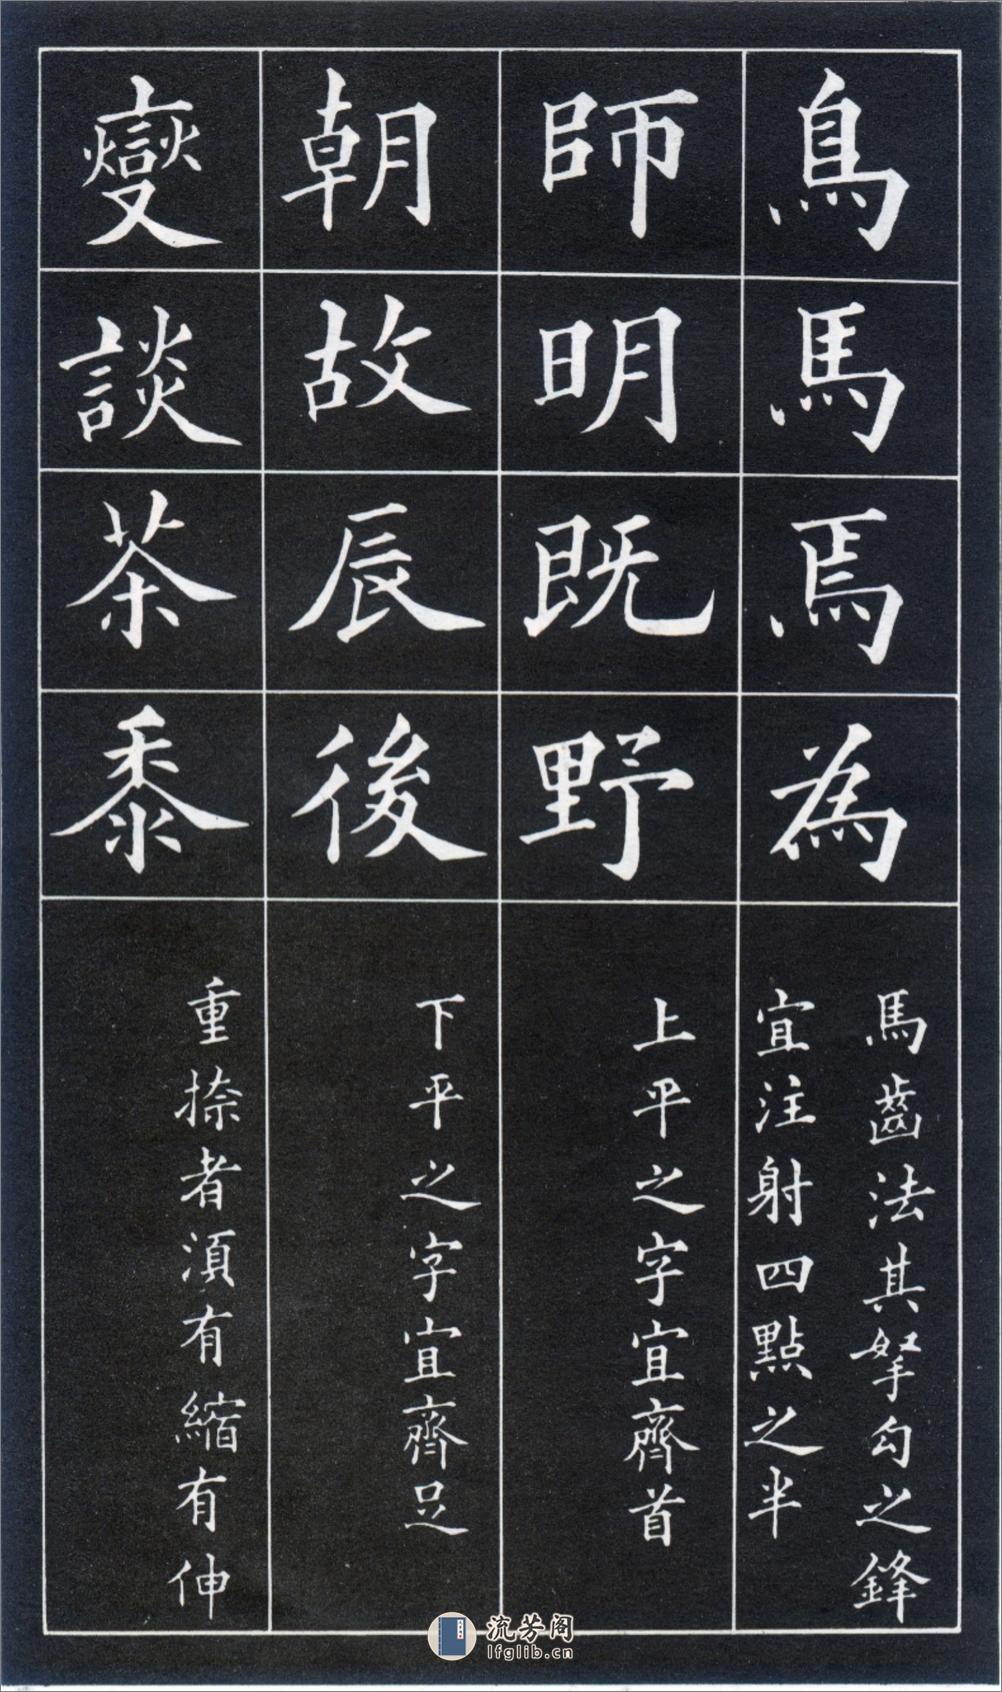 鳥馬焉為
馬齒法其拏勾之鋒
宜注射四點之半
師明既野
上平之字宜齊首
朝故辰後
下平之字宜齊足
變談茶黍
重捺者須有縮有伸
流芳阁
lfglib.cn